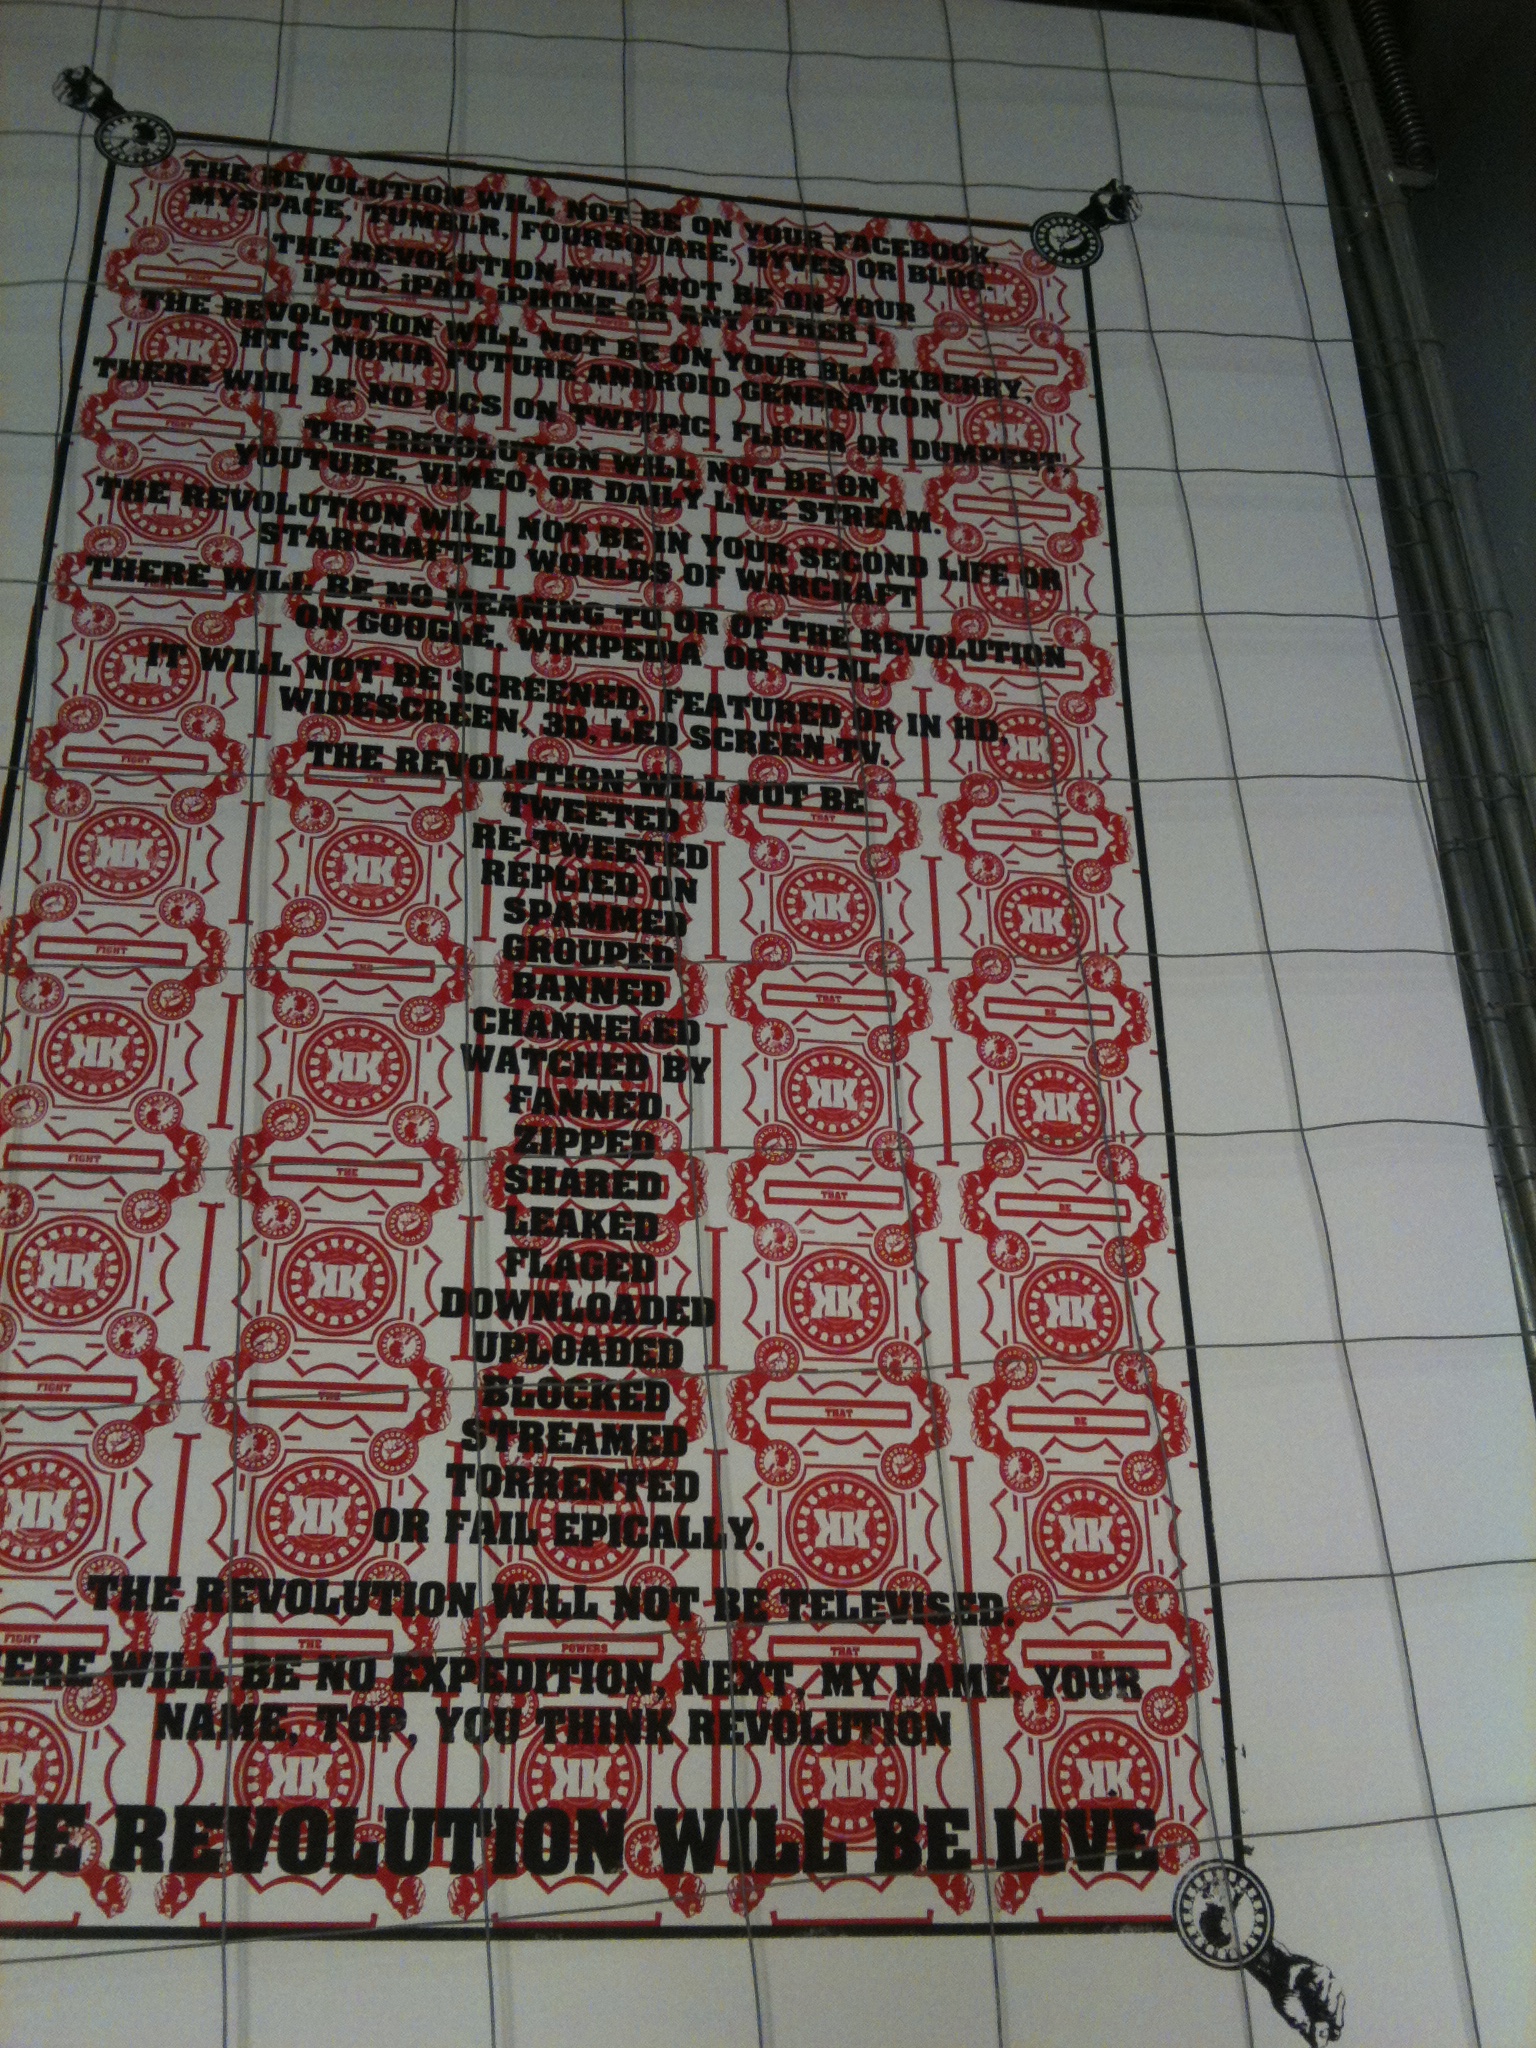 THE REVOLUTION WILL NOT BE ON YOUR FACEBOOK,
MYSPACE, TUMBLR, FOURSQUARE, HYVES OR BLOG.
THE REVOLUTION WILL NOT BE ON YOUR
iPOD, iPAD, iPHONE OR ANY OTHER i
THE REVOLUTION WILL NOT BE ON YOUR BLACKBERRY,
HTC, NOKIA FUTURE ANDROID GENERATION
THERE WIIL BE NO PICS ON TWITPIC, FLICKR OR DUMPERT.
THE REVOLUTION WILL NOT BE ON
YOUTUBE, VIMEO, OR DAILY LIVE STREAM.
THE REVOLUTION WILL NOT BE IN YOUR SECOND LIFE OR
STARCRAFTED WORLDS OF WARCRAFT
THERE WILL BE NO MEANING TO OR OF THE REVOLUTION
ON GOOGLE, WIKIPEDIA OR NU.NL.
IT WILL NOT BE SCREENED, FEATURED OR IN HD,
WIDESCREEN, 3D, LED SCREEN TV.
THE REVOLUTION WILL NOT BE
TWEETED
RE-TWEETED
REPLIED ON
SPAMMED
GROUPED
BANNED
CHANNELED
WATCHED BY
FANNED
ZIPPED
SHARED
LEAKED
FLAGED
DOWNLOADED
UPLOADED
BLOCKED
STREAMED
TORRENTED
OR FAIL EPICALLY.
THE REVOLUTION WILL NOT BE TELEVISED.
FIGHT THE POWERS THAT BE
ERE WILL BE NO EXPEDITION, NEXT, MY NAME, YOUR
NAME, TOP, YOU THINK REVOLUTION
HE REVOLUTION WILL BE LIVE